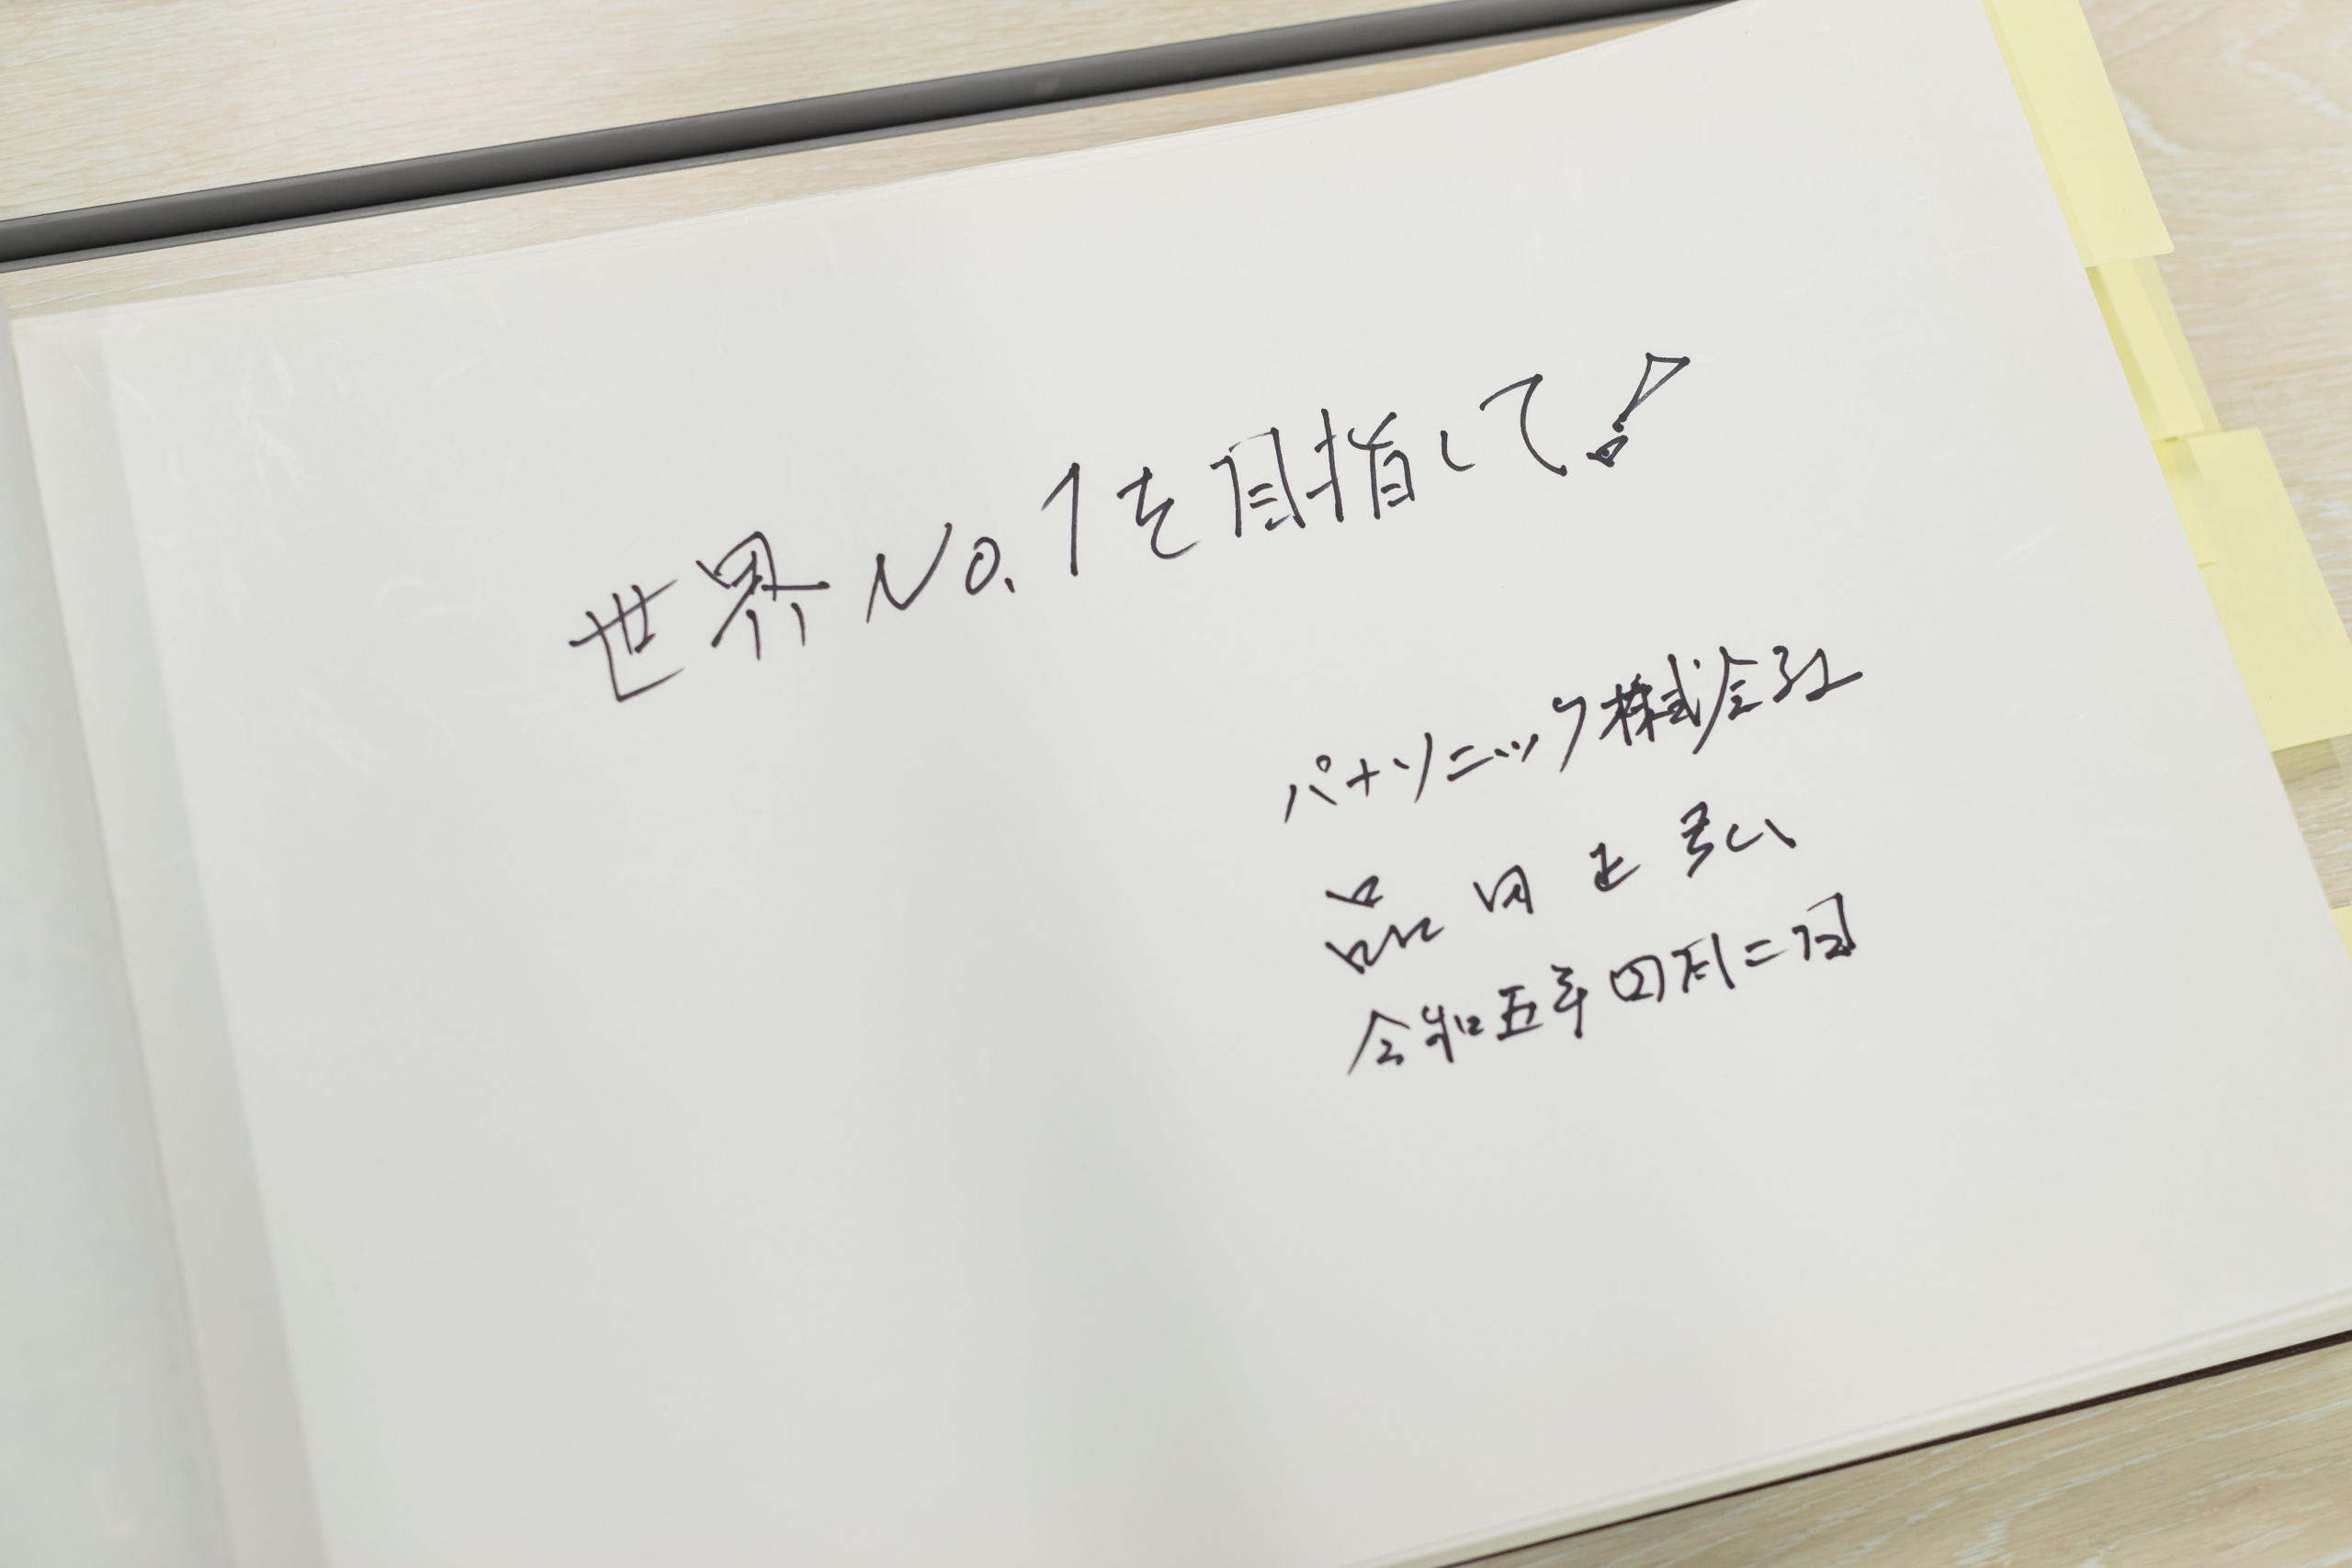 世界No.1を目指して!
パナソニック株式会社
品田正弘
令和五年四月二日